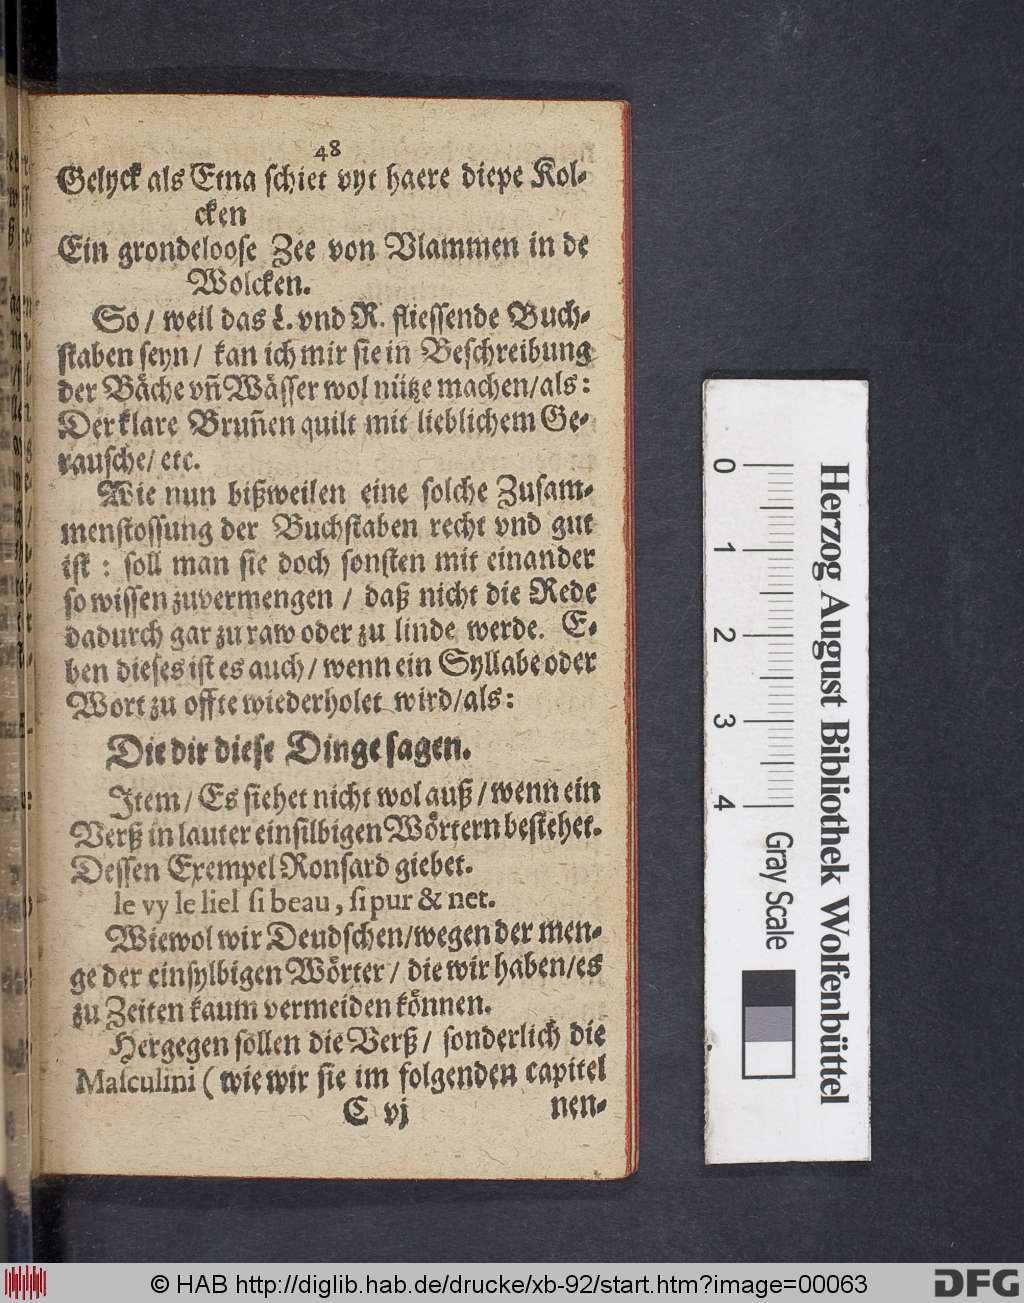 48
Gelyck als Etna ſchiet vyt haere diepe Kol-
cken
Ein grondelooſe Zee von Vlammen in de
Wolcken.
So / weil das L. vnd R. flieſſende Buch-
ſtaben ſeyn / kan ich mir ſie in Beſchreibung
der Bäche vñ Wäſſer wol nütze machen / als:
Der klare Bruñen quilt mit lieblichem Ge-
rauſche / etc.
Wie nun bißweilen eine ſolche Zuſam-
menſtoſſung der Buchſtaben recht vnd gut
iſt : ſoll man ſie doch ſonſten mit einander
ſo wiſſen zuvermengen / daß nicht die Rede
dadurch gar zu raw oder zu linde werde. E-
ben dieſes iſt es auch / wenn ein Syllabe oder
Wort zu offte wiederholet wird / als:
Die dir dieſe Dinge ſagen.
Item / Es ſiehet nicht wol auß / wenn ein
Verß in lauter einſilbigen Wörtern beſtehet.
Deſſen Exempel Ronſard giebet.
Ie vy le liel ſi beau, ſi pur & net.
Wiewol wir Deudſchen / wegen der men-
ge der einſylbigen Wörter / die wir haben / es
zu Zeiten kaum vermeiden können.
Hergegen ſollen die Verß / ſonderlich die
Maſculini ( wie wir ſie im folgenden capitel
C vj nen-
Herzog August Bibliothek Wolfenbüttel
0 1 2 3 4 Gray Scale
© HAB http://diglib.hab.de/drucke/xb-92/start.htm?image=00063
DFG